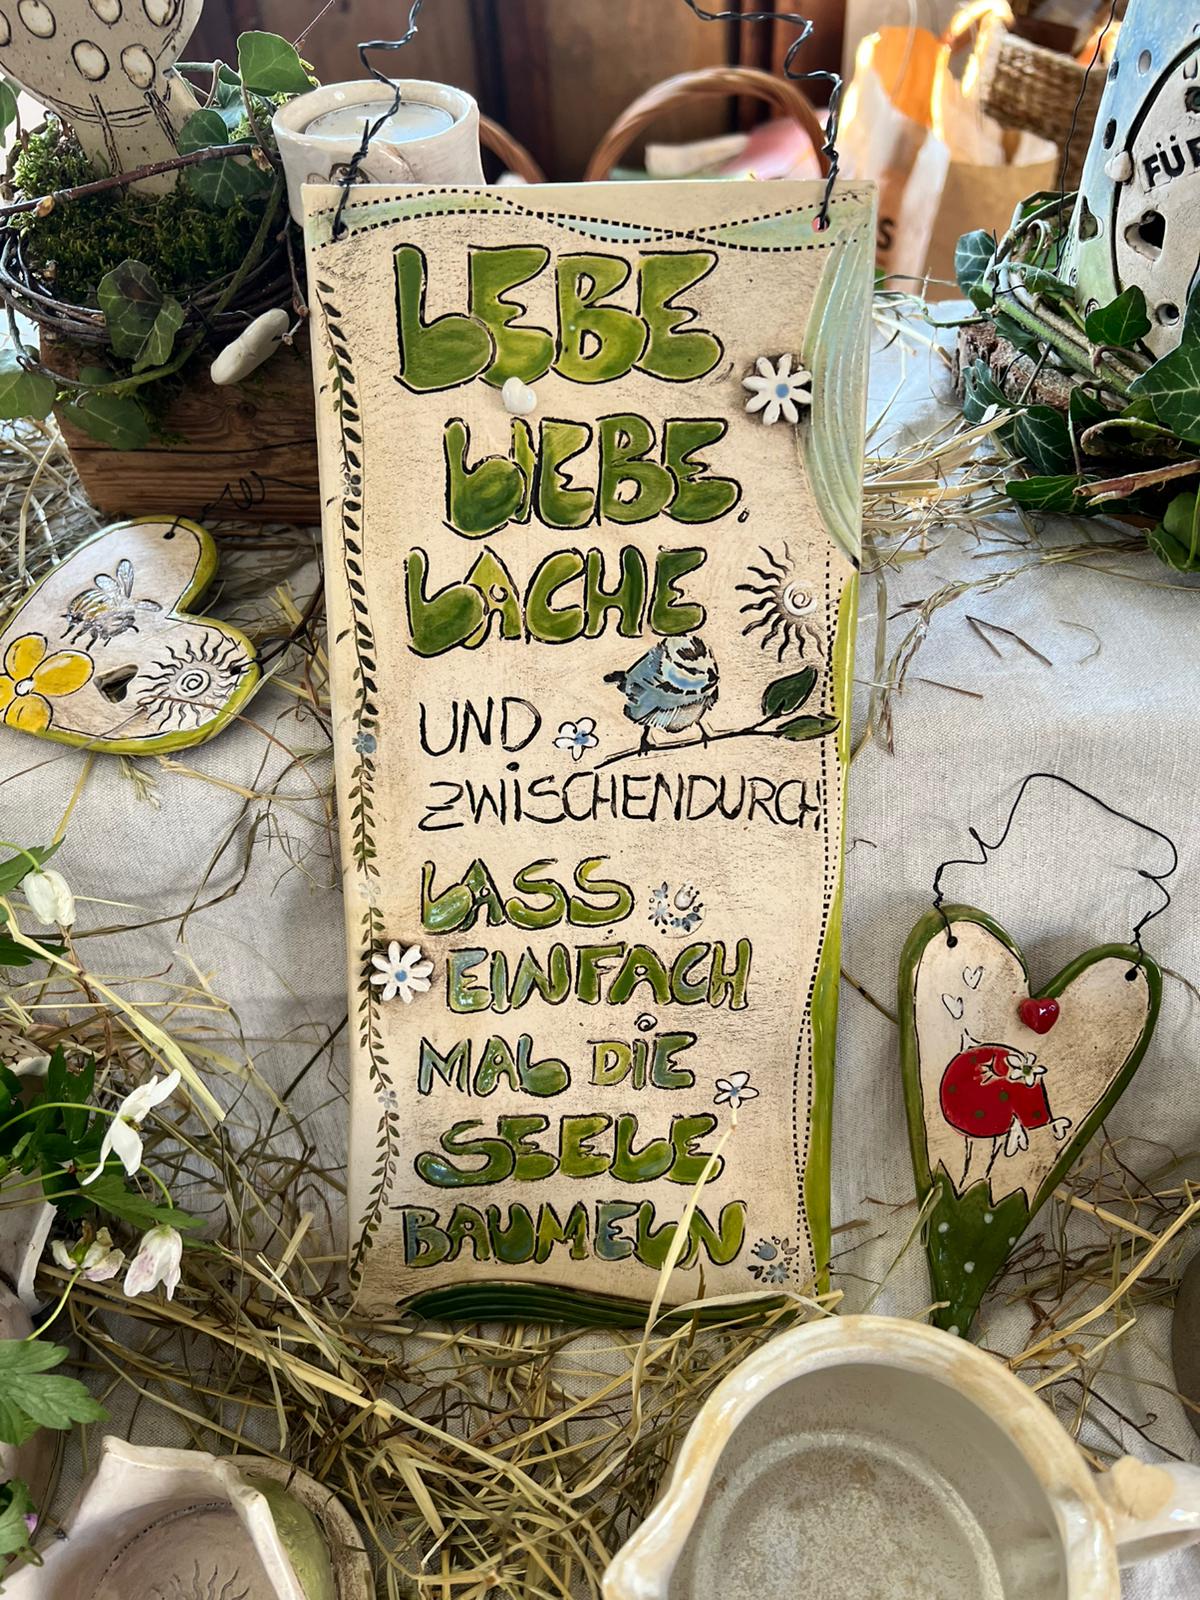 LEBE,
LIEBE,
LACHE
UND
ZWISCHENDURCH
LASS
EINFACH
MAL DIE
SEELE
BAUMELN